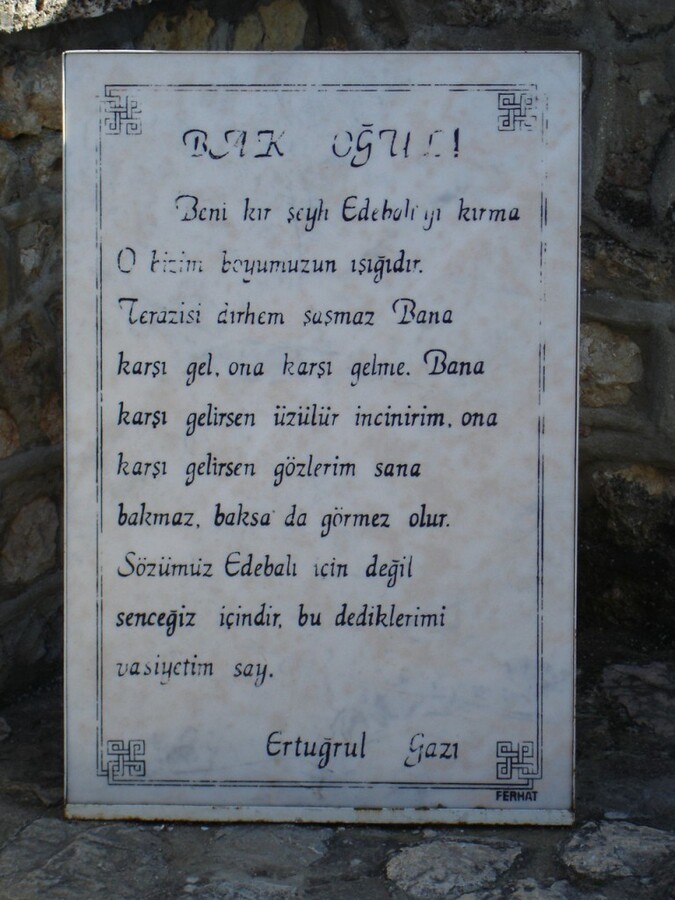 BAK OĞUL!
Beni kır şeyh Edebali'yi kırma
O bizim boyumuzun ışığıdır.
Terazisi dirhem şaşmaz Bana
karşı gel, ona karşı gelme. Bana
karşı gelirsen üzülür incinirim, ona
karşı gelirsen gözlerim sana
bakmaz, baksa da görmez olur.
Sözümüz Edebalı için değil
senceğiz içindir, bu dediklerimi
vasiyetim say.
Ertuğrul Gazı
FERHAT